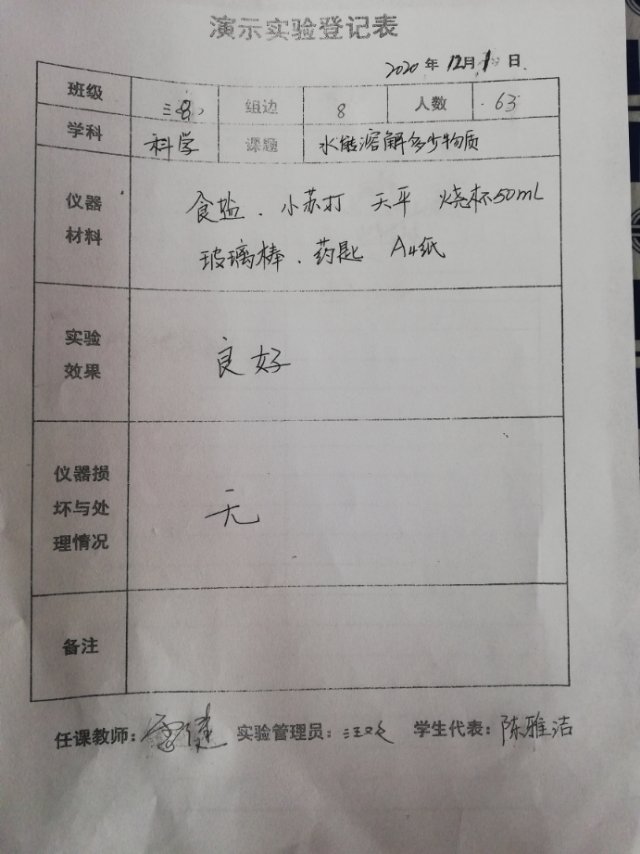 演示实验登记表
2020 年 12月 1 日
班级 三(8) 组边 8 人数 63
学科 科学 课题 水能溶解多少物质
仪器
材料
食盐、小苏打 天平 烧杯50mL
玻璃棒、药匙 A4纸
实验
效果
良好
仪器损
坏与处
理情况
无
备注
任课教师: 实验管理员: 汪 学生代表: 陈雅洁